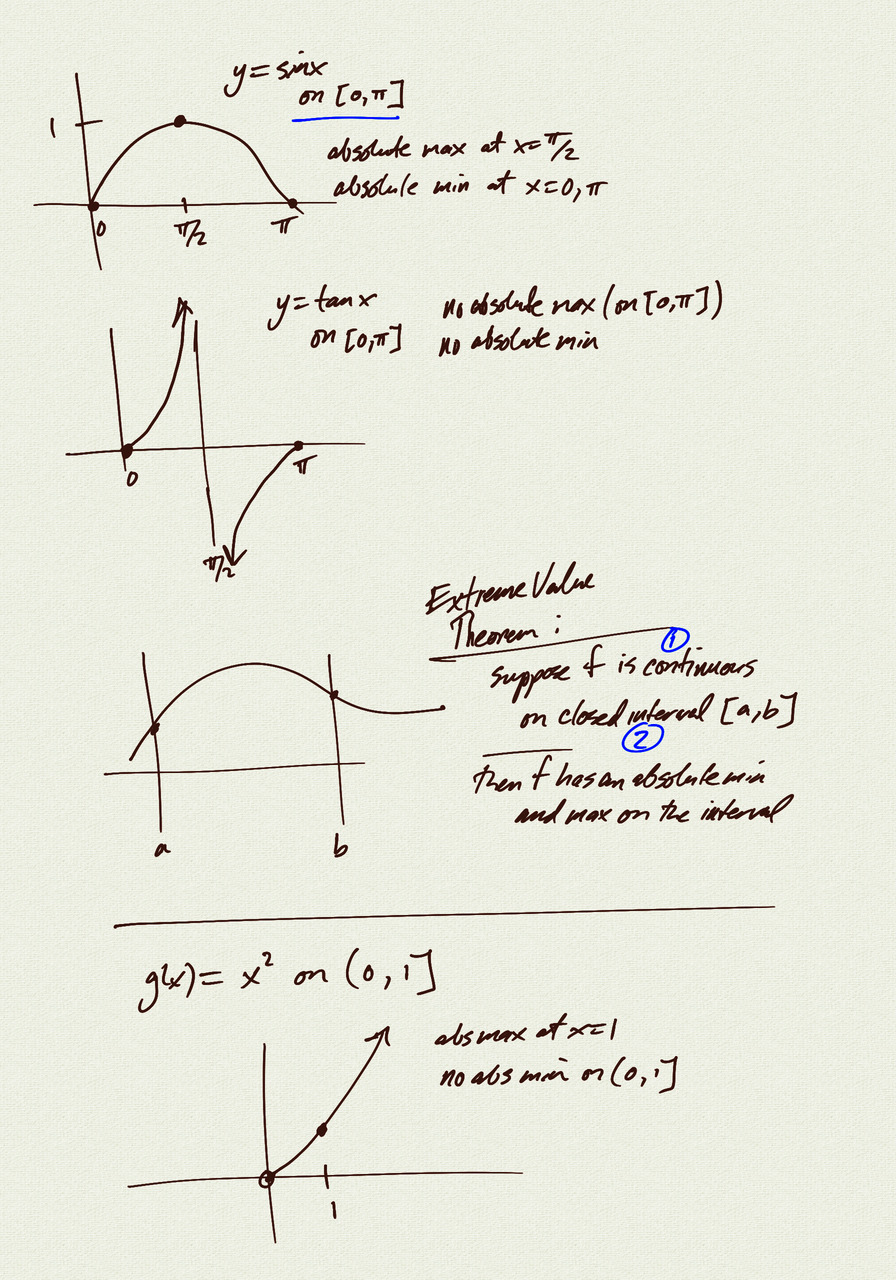 y = sinx
on [0, π]
1
absolute max at x = π/2
absolute min at x = 0, π
0
π/2
π
y = tan x
no absolute max (on [0, π])
on [0, π]
no absolute min
0
π
π/2
Extreme Value
Theorem :
①
suppose f is continuous
on closed interval [a, b]
②
then f has an absolute min
and max on the interval
a
b
g(x) = x² on (0, 1]
abs max at x = 1
no abs min on (0, 1]
1